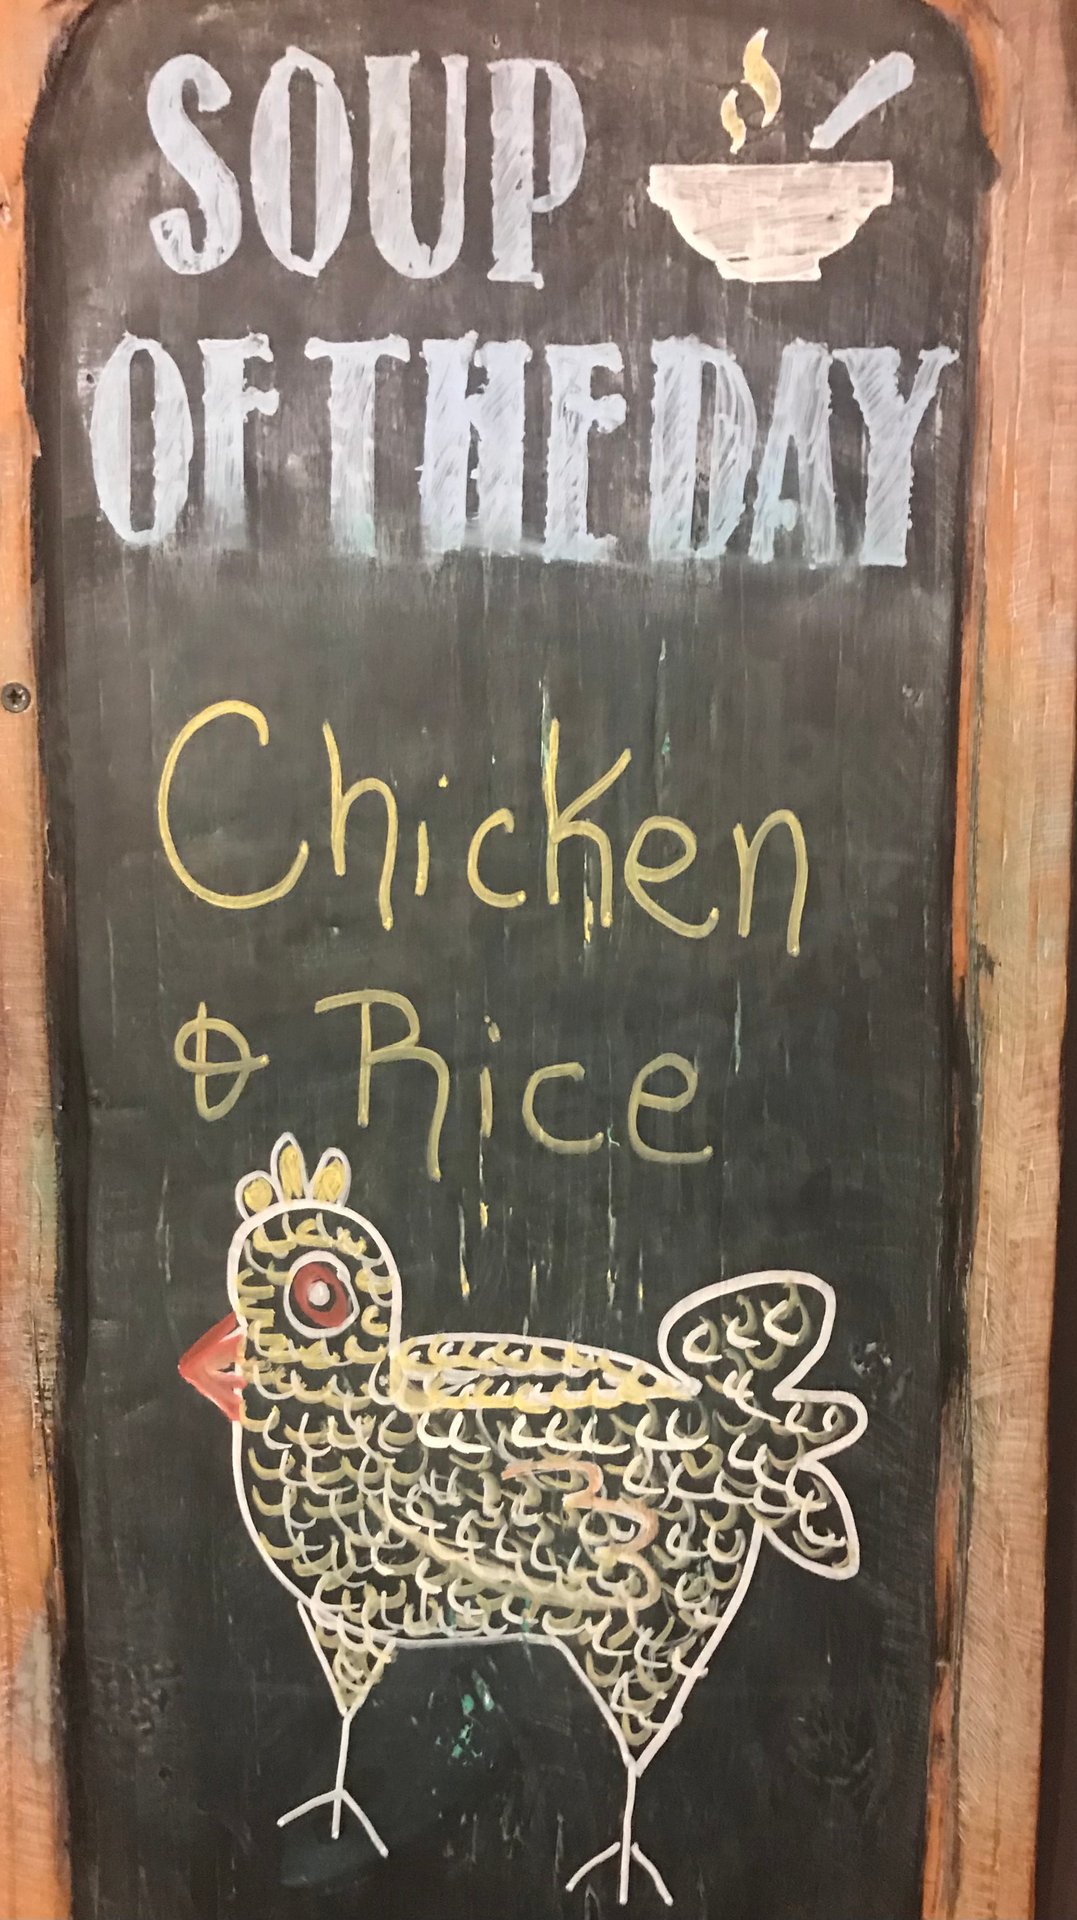 SOUP
OF THE DAY
Chicken
& Rice